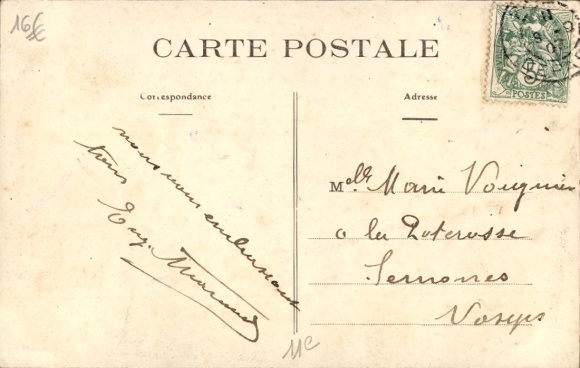 16€
CARTE POSTALE
Correspondance
Adresse
POSTES
nous vous embrassons
tous
Eug. Marand
Melle Marie Vougnier
a la Poterosse
Senones
Vosges
11e